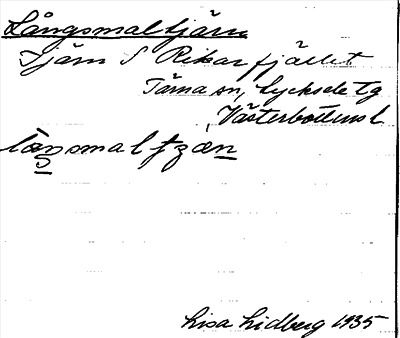 Långsmaltjärn
Tjärn S Rikarfjället
Tärna sn, Lycksele tg
Västerbottens l
Lisa Lidberg 1935